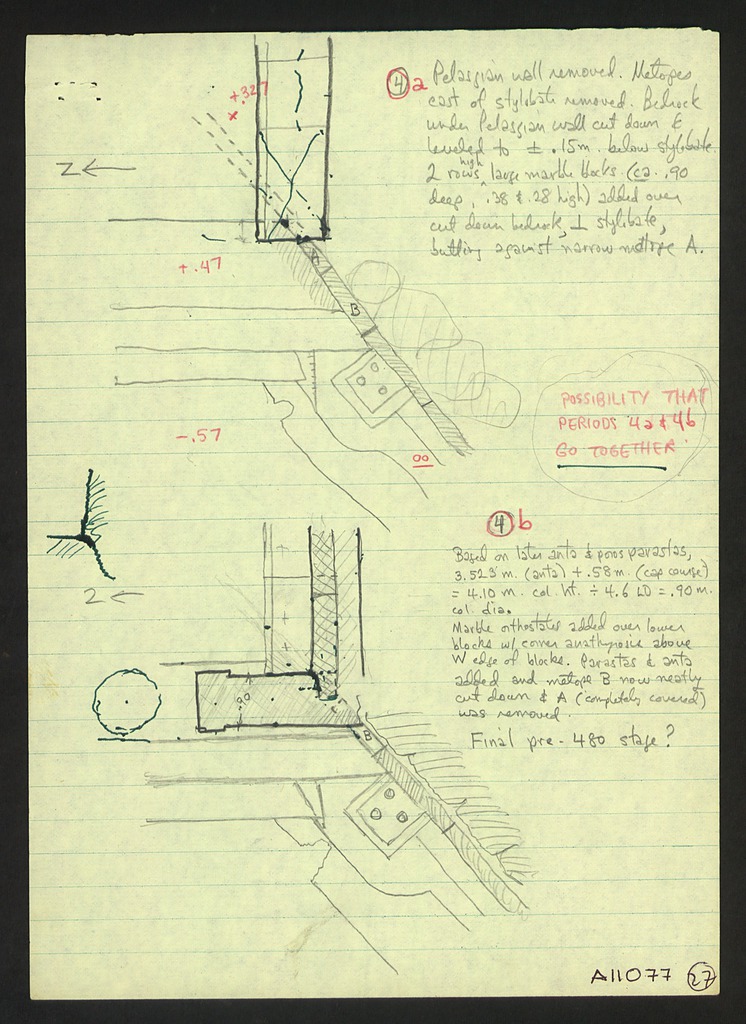 ④a Pelasgian wall removed. Metopes
east of stylobate removed. Bedrock
under Pelasgian wall cut down &
leveled to ± .15m. below stylobate.
2 rows high large marble blocks (ca. .90
deep, .38 & .28 high) added over
cut down bedrock, ⊥ stylobate,
butting against narrow metope A.
+.327
x
N
+.47
A
B
-.57
00
POSSIBILITY THAT
PERIODS 4a & 4b
GO TOGETHER
④b
Based on later anta & poros parastas,
3.523 m. (anta) + .58 m. (cap course)
= 4.10 m. col. ht. ÷ 4.6 LD = .90 m.
col. dia.
Marble orthostates added over lower
blocks w/ corner anathyrosis above
W edge of blocks. Parastas & anta
added and metope B now neatly
cut down & A (completely covered)
was removed.
Final pre-480 stage?
N
.90
B
A11077 27